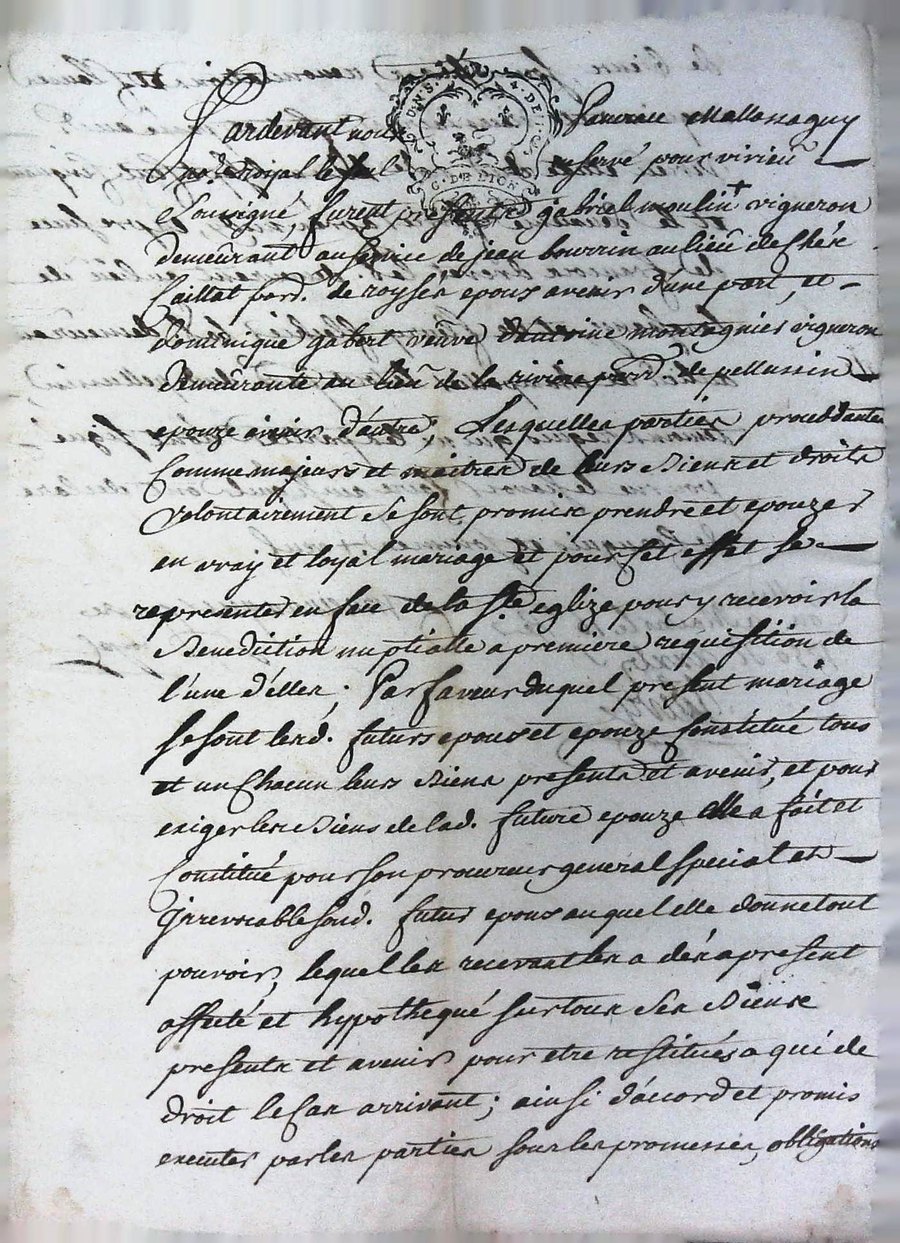 Pardevant nous Laurent Mallonaguy
no.re royal le seul reservé pour virieu
Soussigné, furent presents gabriel moulin + vigneron
demeurant au service de jean bourrin au lieu de Chéz
Caillat parr. de royséy epoux avenir d'une part, et
dominique gabert veuve d'antoine montagnier vigneron
demeurante au lieu de la riviere parr. de pellussin
epouze avenir d'autre; Lesquelles parties procedantes
Comme majeurs et maitres de leurs Biens et droits
Volontairement Se sont promis prendre et epouzer
en vray et loyal mariage et pour cet effet se
representer en face de la S.te eglize pour y recevoir la
Benediction nuptialle a premiere requisition de
l'une d'elles; Par faveur duquel present mariage
se sont lesd. futurs epoux et epouze Constitué tous
et un Chacun leurs Biens presents et avenir, et pour
exiger les Biens de lad. future epouze elle a fait et
Constitué pour son procureur general special et
Irrevocable sond. futur epoux auquel elle donne tout
pouvoir, lequel les recevant les a dés a present
affecté et hypothequé sur tous Ses Biens
presents et avenir pour etre restitués a qui de
droit le Cas arrivant; ainsi d'accord et promis
executer par les parties sous les promesses, obligations
G. DE LYON